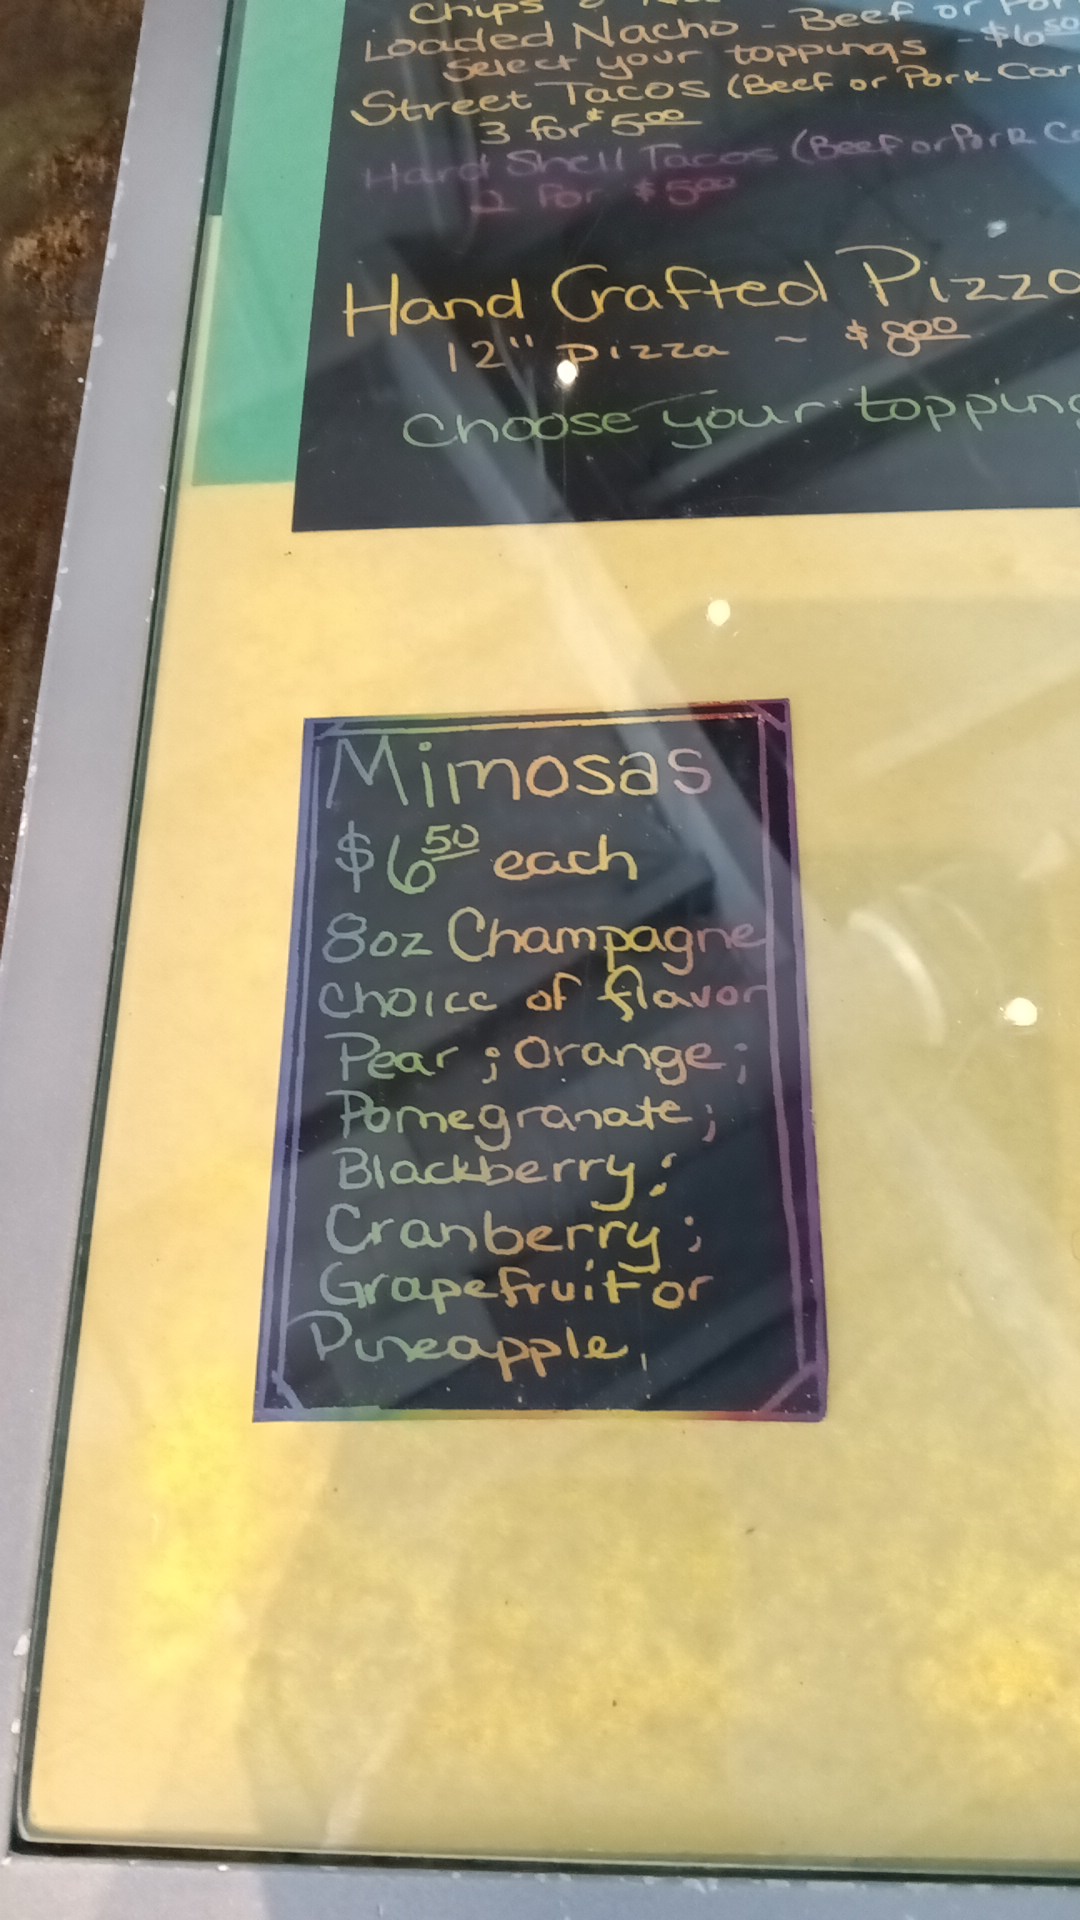 Chips &
Loaded Nacho - Beef or
Select your toppings - $6.50
Street Tacos (Beef or Pork
3 for $5.00
Hard Shell Tacos (Beef or Pork
2 for $5.00
Hand Crafted
12" pizza ~ $8.00
Choose your
Mimosas
$6.50 each
8oz Champagne
choice of flavor
Pear ; Orange ;
Pomegranate ;
Blackberry ;
Cranberry ;
Grapefruit or
Pineapple,